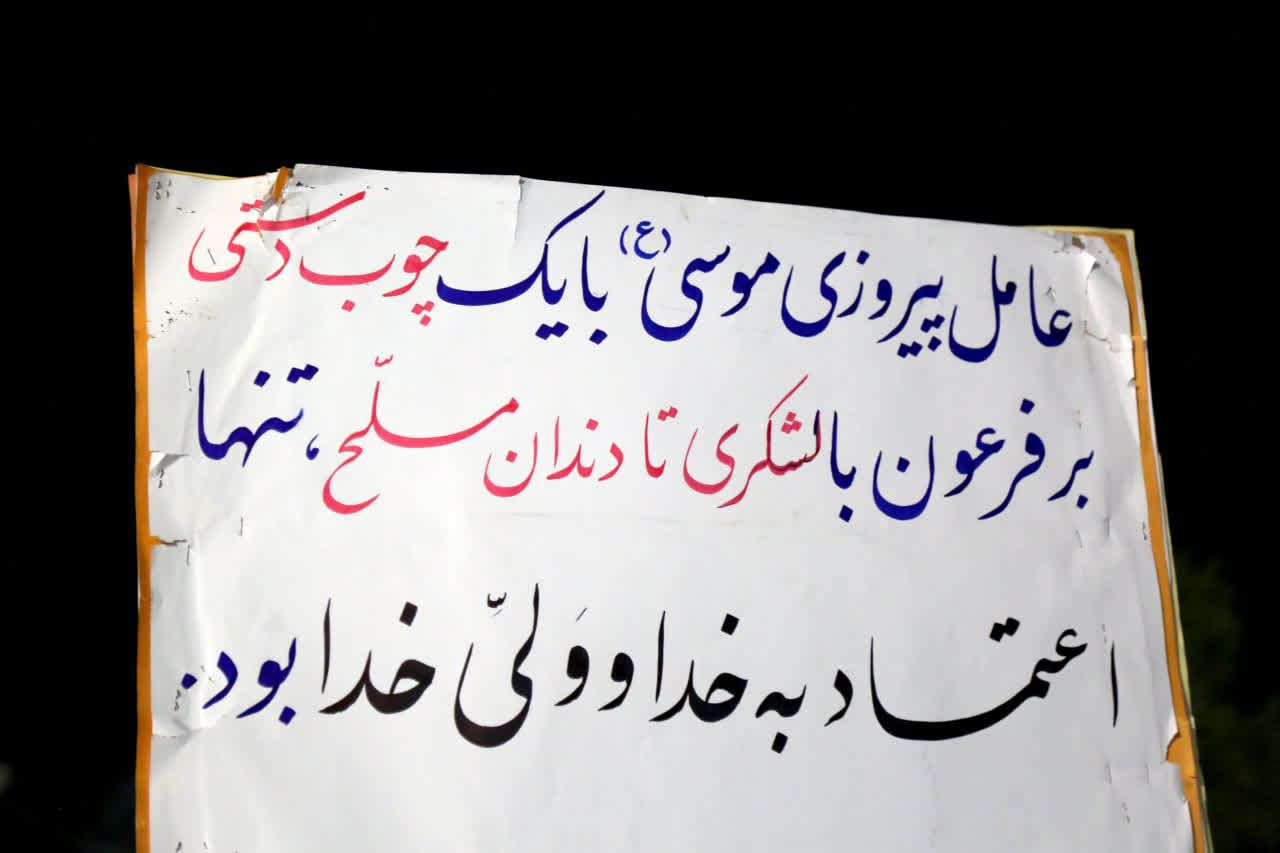 عامل پیروزی موسی (ع) با یک چوب دستی
بر فرعون با لشکری تا دندان مسلّح، تنها
اعتماد به خدا و وَلیِّ خدا بود.